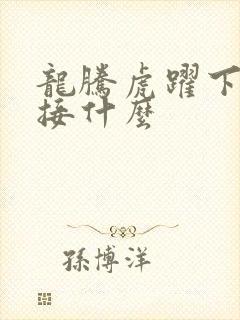 龍騰虎躍下
接什麼
孫博洋